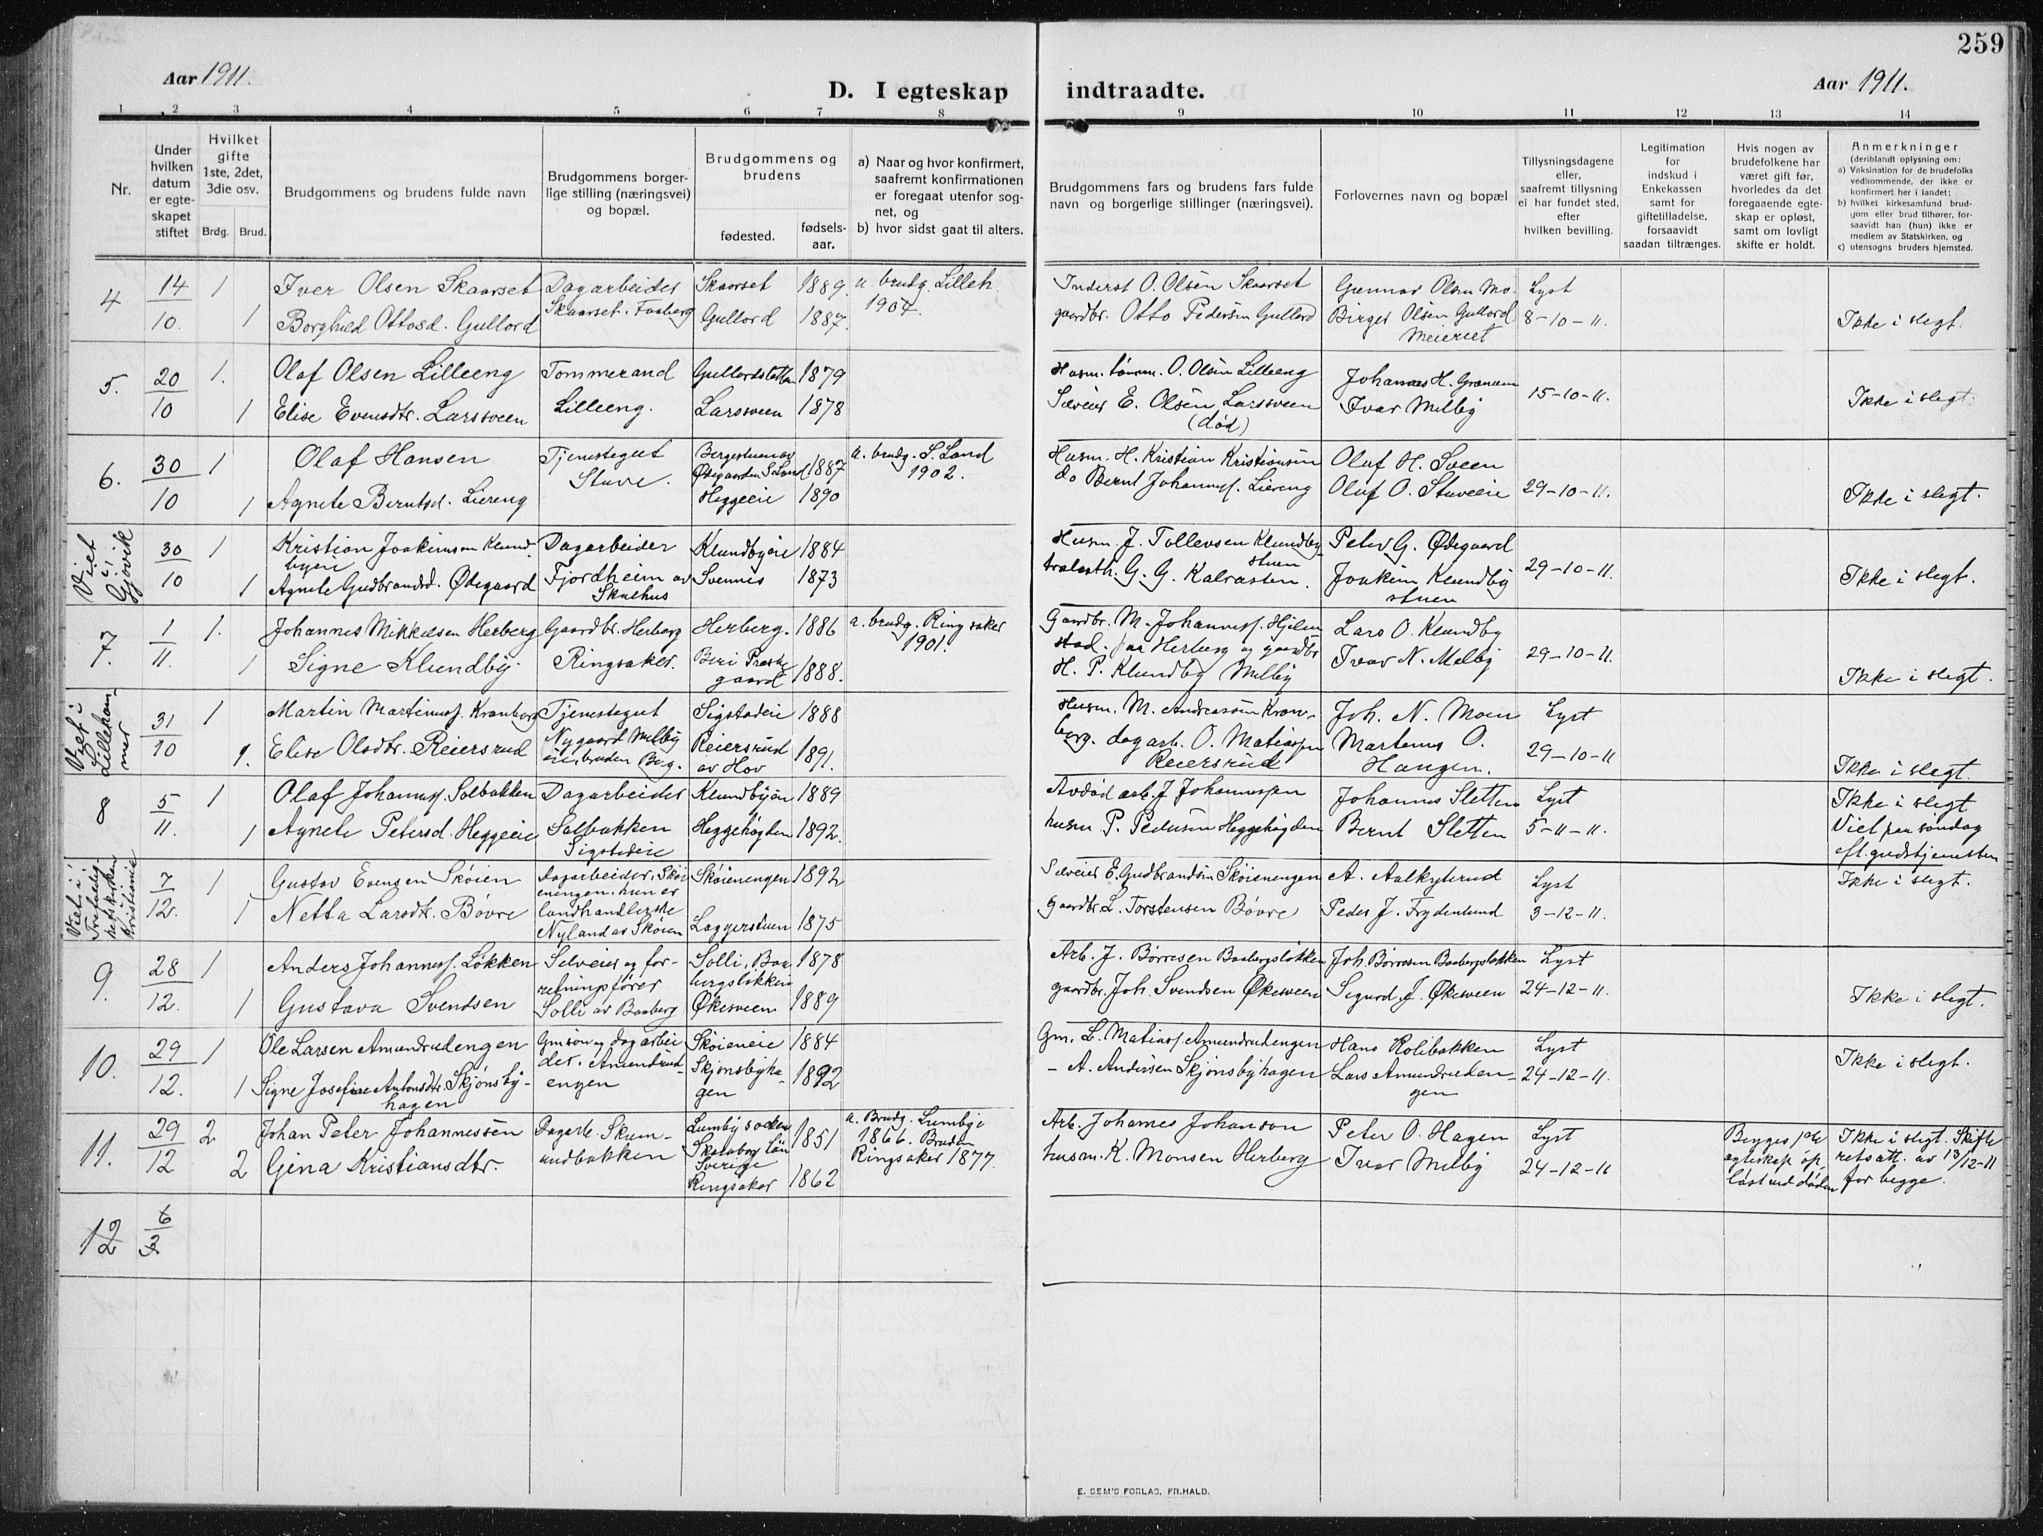 259
Aar 1911.
D. I egteskap indtraadte.
Aar 1911.
1 2 3 4 5 6 7 8 9 10 11 12 13 14
Nr.
Under
hvilken
datum
er egte-
skapet
stiftet
Hvilket
gifte
1ste, 2det,
3die osv.
Brdg. Brud.
Brudgommens og brudens fulde navn
Brudgommens borger-
lige stilling (næringsvei)
og bopæl.
Brudgommens og
brudens
fødested.
fødsels-
aar.
a) Naar og hvor konfirmert,
saafremt konfirmationen
er foregaat utenfor sog-
net, og
b) hvor sidst gaat til alters.
Brudgommens fars og brudens fars fulde
navn og borgerlige stillinger (næringsvei).
Forlovernes navn og bopæl
Tillysningsdagene
eller,
saafremt tillysning
ei har fundet sted,
efter
hvilken bevilling.
Legitimation
for
indskud i
Enkekassen
samt for
giftetilladelse,
forsaavidt
saadan tiltrænges.
Hvis nogen av
brudefolkene har
været gift før,
hvorledes da det
foregaaende egte-
skap er opløst,
samt om lovligt
skifte er holdt.
Anmerkninger
(deriblandt oplysning om:
a) Vaksination for de brudefolks
vedkommende, der ikke er
konfirmert her i landet;
b) hvilket kirkesamfund brud-
gom eller brud tilhører, for-
saavidt han (hun) ikke er
medlem av Statskirken, og
c) utensogns bruders hjemsted.
4 14/10. 1 Iver Olsen Skaarset Dagarbeider Skaarset 1889 a. brudg. Lilleh. Inderst O. Olsen Skaarset Gunnar Olsen Mo. Lyst
1 Borghild Ottosd. Gullord Skaarset. Faaberg Gullord 1887. 1904. gaardbr. Otto Pedersen Gullord Birger Olsen Gullord 8-10-11. Ikke i slegt.
Meieriet
5. 20/10 1. Olaf Olsen Lilleeng Tømmerand Gullordsletten 1879 Husm. tømm. O. Olsen Lilleeng Johannes H. Grønæm
1 Elise Evensdtr. Larssveen Lilleeng. Larsveen 1878 Selveier E. Olsen Larssveen Ivar Melby 15-10-11. Ikke i slegt.
(død)
6. 30/10 1 Olaf Hansen Tjenestegut Bergestuen av a. brudg. S. Land Husm. H. Kristian Kristiansen Olaf H. Sveen
Stuve. Ødegaarden S. Land 1887 1902.
1 Agnete Berntsd. Liereng Heggeeie 1890 do Bernt Johannesf. Liereng Olaf O. Stuveeie 29-10-11. Ikke i slegt.
Viet i Gjøvik 30/10 1 Kristian Joakimsen Klund- Dagarbeider Klundbyeie 1884 Husm. J. Tollevsen Klundby- Peter G. Ødegaard
byeie Fjordheim av stuen 29-10-11.
1 Agnete Gudbrandsd. Ødegaard Skulhus Svennes 1873 G. G. Kalrasten. Joakim Klundby Ikke i slegt.
stuen
7. 1/11. 1. Johannes Mikkelsen Herberg Gaardbr. Herberg Herberg. 1886 a. brudg. Ringsaker Gaardbr. M. Johannesf. Hjelm- Lars O. Klundby
1 Signe Klundby. Ringsaker. Biri Præste- 1901. stad. paa Herberg og gaardbr Ivar N. Melby 29-10-11.
gaard 1888. H. P. Klundby Melby Ikke i slegt.
Viet i Lilleham-mer 31/10 1 Martin Martinusf. Kronborg Tjenestegut Sigstadeie 1888 Husm. M. Andreassen Kron- Joh. N. Moen Lyst
1. Elise Olsdtr. Reiersrud Nygaard Melby Reiersrud berg. dagarb. O. Matiassen Martinus O. 29-10-11
eie, bruden Berg. av Hov 1891. Reiersrud Haugen. Ikke i slegt.
8 5/11. 1 Olaf Johannesf. Solbakken Dagarbeider Klundbyeie 1889 Avdød arb. J. Johannessen Johannes Sletten Lyst Ikke i slegt
1 Agnete Petersd. Heggeeie Solbakken Heggehøgden 1892. husm P. Pedersen Heggehøgden Bernt Sletten 5-11-11. Viet paa søndag
Sigstadeie eft. gudstjenesten
Viet i Trefolig-hetskirken Kristiania 7/12. 1 Gustav Evensen Skøien Dagarbeider, Skøi- Skøienengen 1892 Selveier E. Gudbrandsen Skøienengen A. Aalkytrud Lyst Ikke i slegt.
enengen, hun er
1 Netta Larsdtr. Bøvre landhandlerske Laggerstuen 1875 gaardbr. L. Torstensen Bøvre Peder J. Frydenlund 3-12-11.
Nyland av Skøien
9. 28/12. 1 Anders Johannesf. Løkken Selveier og for- Solli, Baa- 1878 Arb. J. Børresen Baabergsløkken Joh. Børresen Baabergsløkken Lyst
retningsfører bergsløkken
1 Gustava Svendsen Solli av Baaberg Økesveen 1889 gaardbr. Joh. Svendsen Økesveen Sigurd J. Økesveen 24-12-11. Ikke i slegt.
10. 29/12. 1 Ole Larsen Amundrudengen Gmsøn og dagarbei- Skøieneie 1884 Gm. L. Matiasf. Amundrudengen Hans Kolibakken Lyst
der. Amundrud-
1 Signe Josefine Antonsdtr. Skjønsby- engen Skjønsbyha- 1892 - A. Andersen Skjønsbyhagen Lars Amundruden- 24-12-11. Ikke i slegt.
hagen gen gen
11. 29/12 2 Johan Peter Johannessen Dagarb. Skum- Lumby socken 1851 a. Brudg. Lumby i Arb. Johannes Johanson Peter O. Hagen Lyst Begges første Ikke i slegt. Skifte
undbakken Skaraborg Län 1866. Bruden
2 Gina Kristiansdtr. Sverige Ringsaker 1877. husm. K. Monsen Herberg Ivar Melby 24-12-11 egteskap op- retsatt. av 13/12-11
Ringsaker 1862 løst ved døden for begge.
12 6/3
E. SEM'S FORLAG, FR.HALD.